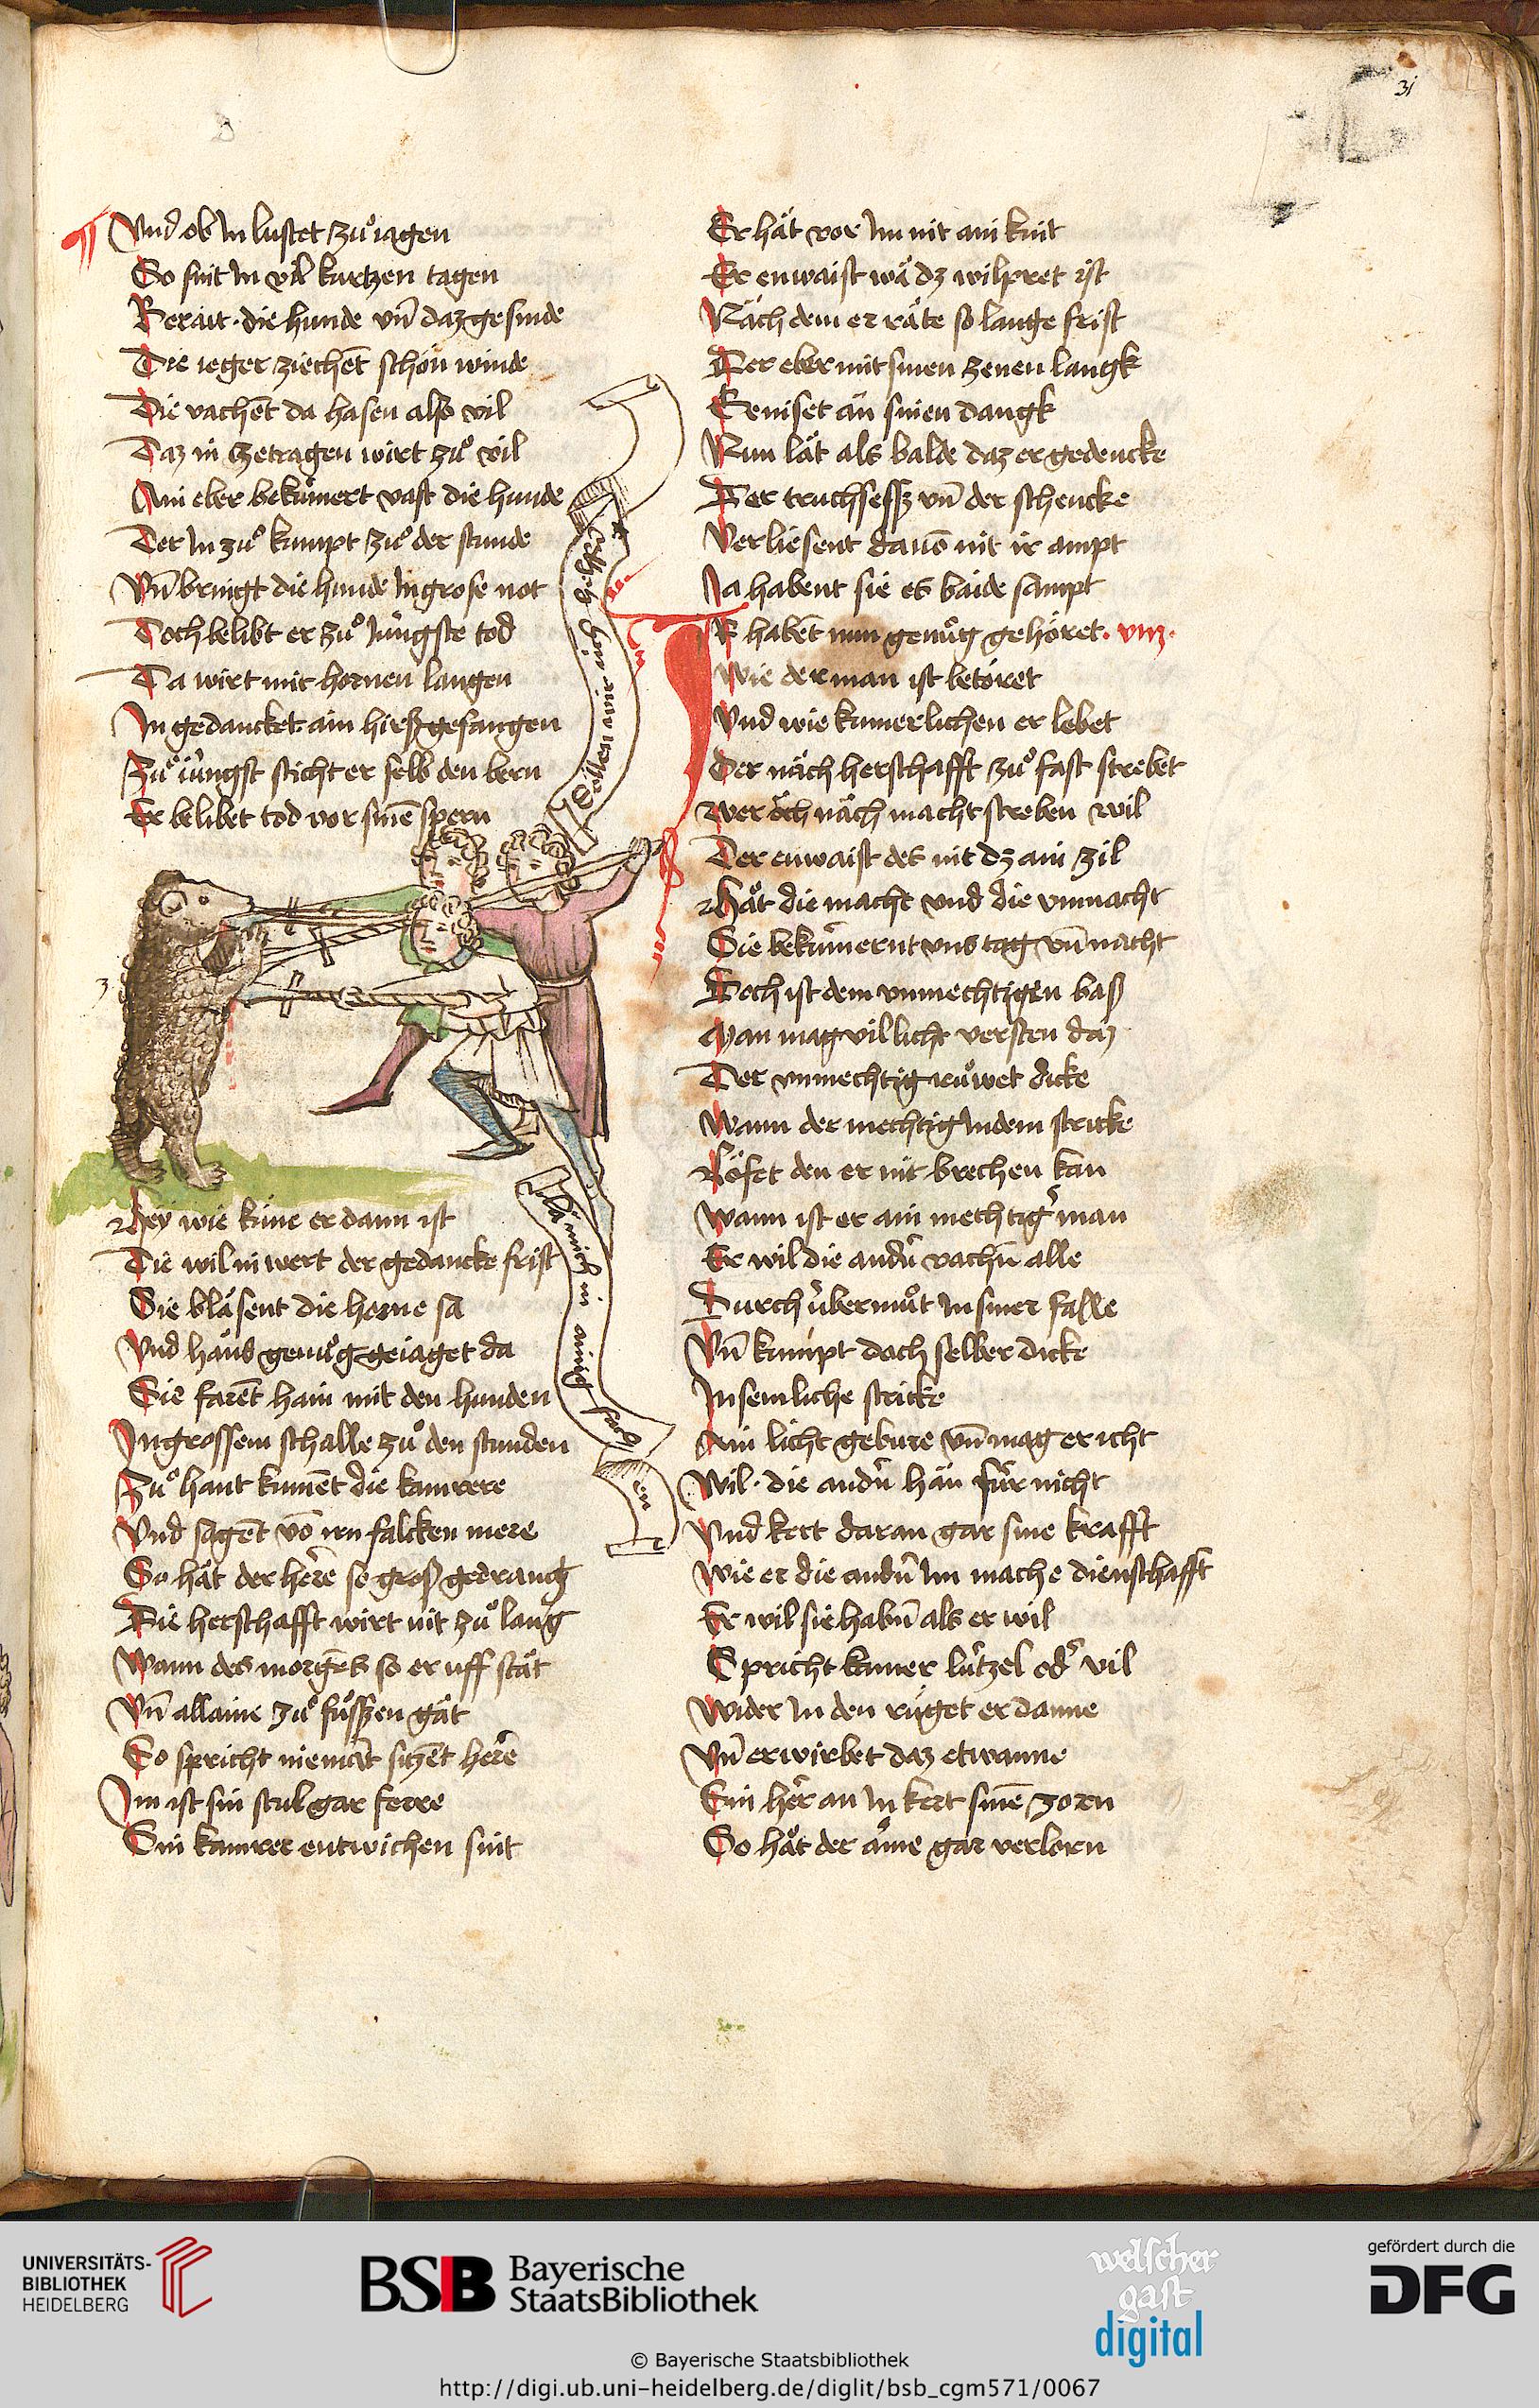 31
Vnd ob In lustet zuͦ iagen
So sint In vil kurtzen tagen
Berait · die hunde vn̄ daz gesinde
Die ieger ziechēt schön winde
Die vachēt da hasen also vil
Daz in zetragen wirt zuͦ vil
Ain eber bekūmert vast die hunde
Der In zuͦ kumpt zuͦ der stunde
Vn̄ bringt die hunde In grose not
Doch belibt er zuͦ Jüngste tod
Da wirt mit hornen langen
In gedancket ain hirß gefangen
Zuͦ iüngst sticht er selb den bern
Er belibet tod vor sinē spern
Söllen wir
Lā mich in ainig
en
Hey wie küne er dann ist
Die wil in wert der gedancke frist
Sie bläsent die horne sa
Vnd hānd genuͦg geiaget da
Sie farēt hain mit den hunden
In grossem schalle zuͦ den stunden
Zuͦ hant kumēt die kamrere
Vnd sagēt vō irn falcken mere
So hāt der here so groß gedrang
Die herschafft wirt nit zuͦ lang
Wann des morgēs so er uff stāt
Vn̄ allaine zuͦ fuͤssen gāt
So spricht niemāt sitzēt here
Im ist sin stul gar ferre
Sin kamrer entwichen sint
Er hāt vor Im nit ain kint
Er enwaist wā dz wilpret ist
Nāch dem er rāte so lange frist
Der eber mit sinen zenen langk
Er niset ān sinen dangk
Nun lāt als balde daz er gedencke
Der truchsess vn̄ der schencke
Verliesent dauō nit ir ampt
Ja habent sie es baide sampt
Ir habēt nun genuͦg gehöret · viii ·
Wie der man ist betöret
Vnd wie kumerlichen er lebet
Der nāch herschafft zuͦ fast strebet
Wer och nāch macht streben wil
Der enwaist des nit dz ain zil
Hāt die macht vnd die vnmacht
Sie bekümernt vns tag vn̄ nacht
Doch ist dem vnmechtigen baß
Man mag vil licht versten daz
Der vnmechtig ruͦwet dicke
Wann der mechtig In dem stricke
Löset den er nit brechen kan
Wann ist er ain mechtigͬ man
Er wil die andn̄ vachn̄ alle
Durch übermuͦt In siner falle
Vn̄ kumpt doch selber dicke
In semliche stricke
Ain licht gebure vn̄ mag er icht
Wil · die andn̄ hān für nicht
Vnd kert daran gar sine krafft
Wie er die andn̄ Im mache dienschafft
Er wil sie habn̄ als er wil
Spricht kainer lützel odͬ vil
Wider In den rüget er danne
Vn̄ erwirbet daz etwanne
Sin her an In kert sinē zorn
So hāt der āme gar verlorn
UNIVERSITÄTS-
BIBLIOTHEK
HEIDELBERG
BSB Bayerische
StaatsBibliothek
welscher
gast
digital
gefördert durch die
DFG
© Bayerische Staatsbibliothek
http://digi.ub.uni-heidelberg.de/diglit/bsb_cgm571/0067